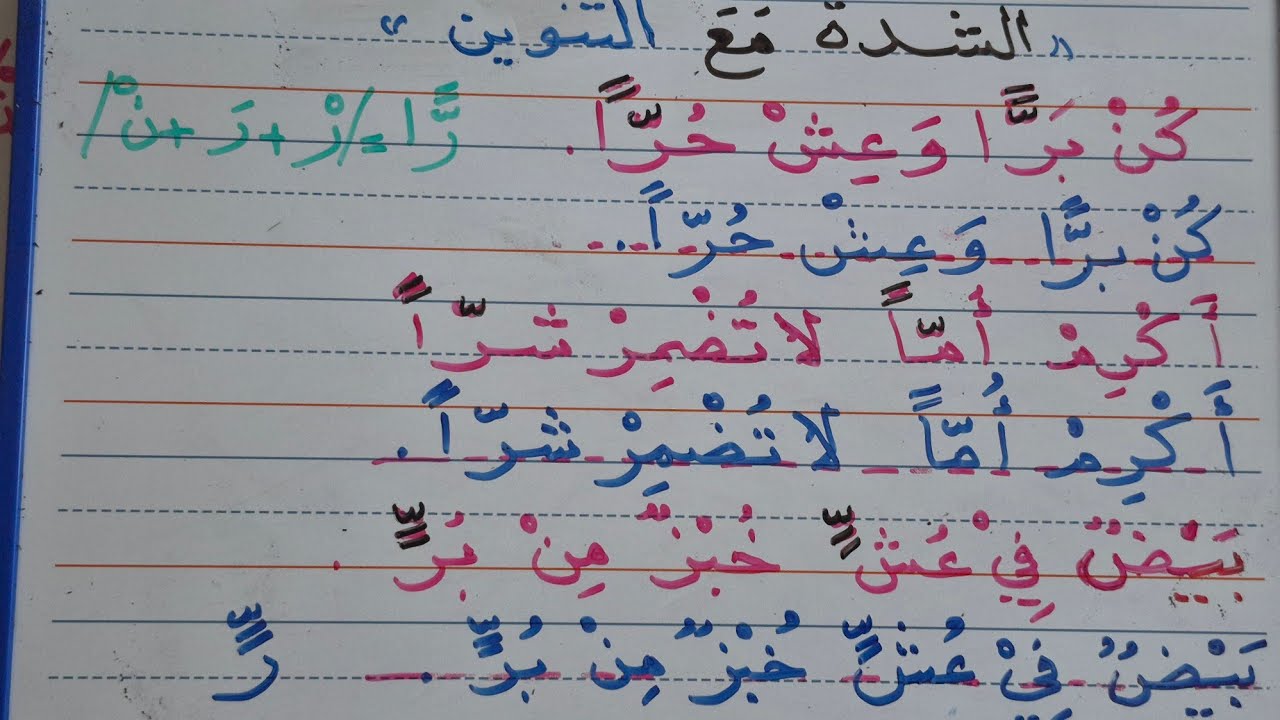 " الشدة مَعَ التنوين "
كُنْ بَرًّا وَعِشْ حُرّاً. رًّا =/رْ + رَ + نْ/
كُنْ برًّا وَعِشْ حُرّاً..
أَكْرِمْ أمّاً لا تُضْمِرْ شرّاً
أَكْرِمْ أُمّاً لا تُضْمِرْ شرّاً.
بَيْضٌ فِيْ عُشٍّ خُبْزٌ مِنْ بُرٍّ.
بَيْضٌ فِيْ عُشٍّ خُبْزٌ مِنْ بُرٍّ. رٍّ